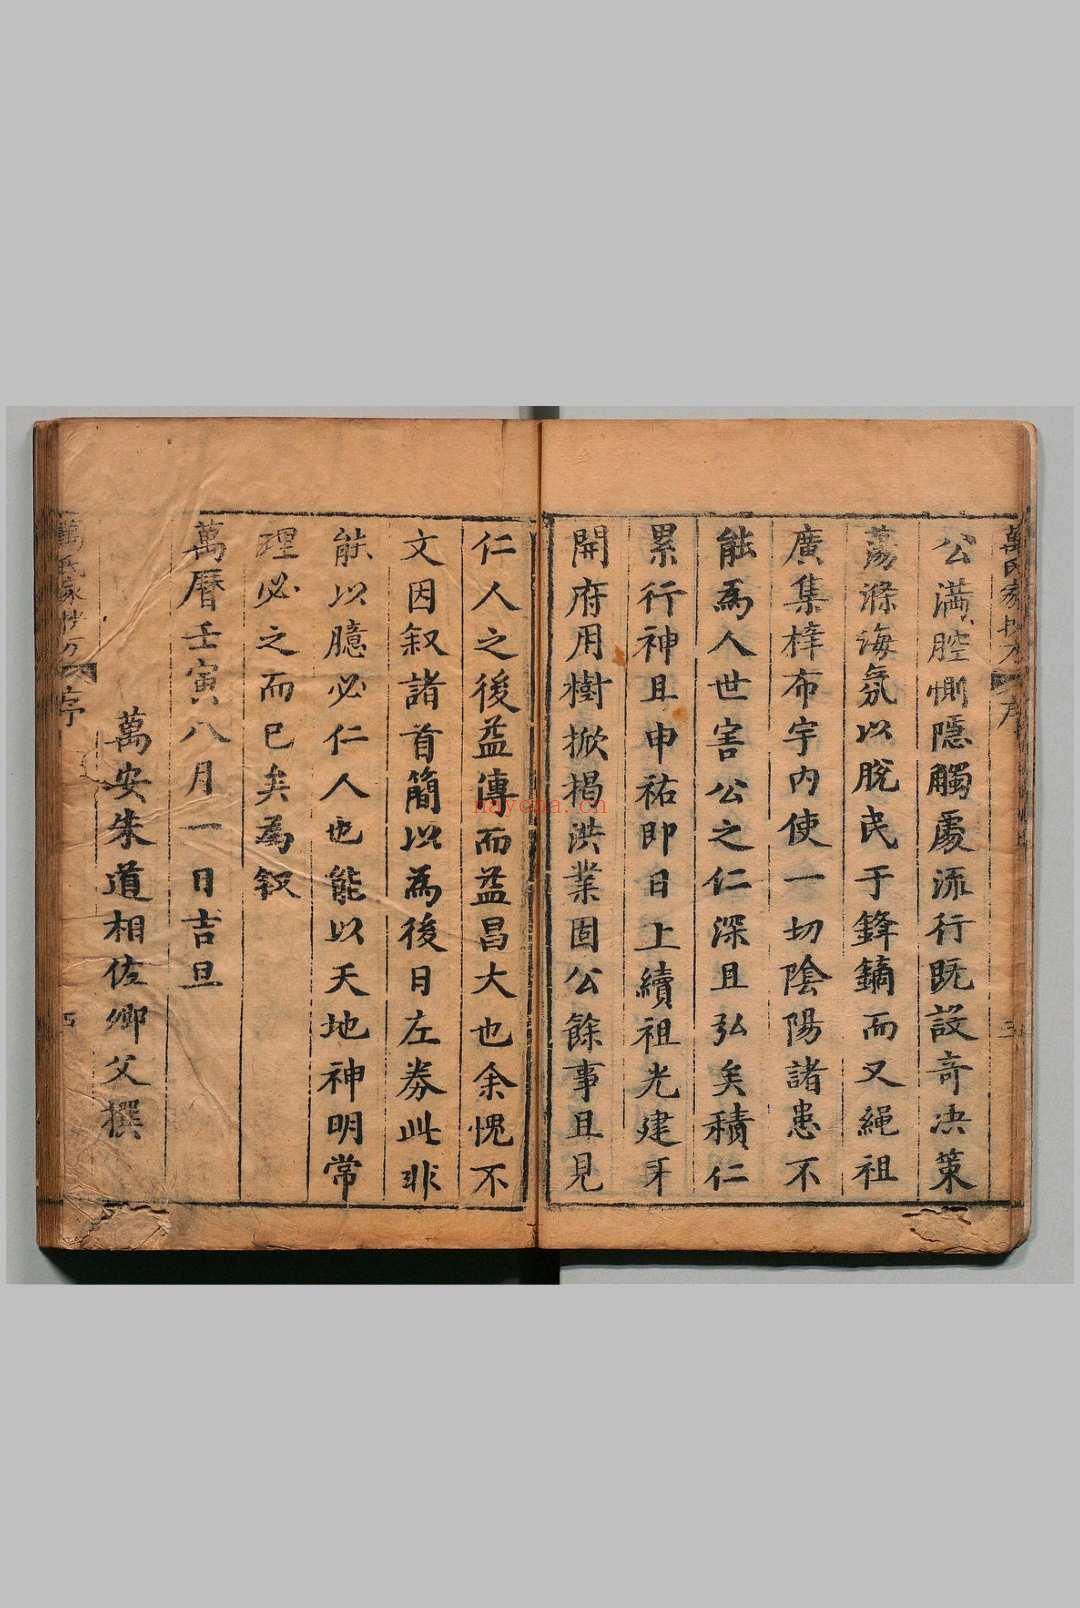 公滿腔惻隱觸處流行既設奇決策
蕩滌海氛以脫民于鋒鏑而又繩祖
廣集梓布宇內使一切陰陽諸患不
能為人世害公之仁深且弘矣積仁
累行神且申祐即日上續祖光建牙
開府用樹掀揭洪業固公餘事且見
仁人之後益傳而益昌大也余愧不
文因叙諸首簡以為後日左券此非
能以臆必仁人也能以天地神明常
理必之而已矣為叙
萬曆壬寅八月一日吉旦
萬安朱道相佐卿父撰
萬氏家抄方 序
nayona.cn